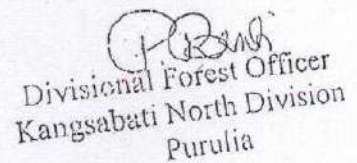 Divisional Forest Officer
Kangsabati North Division
Purulia